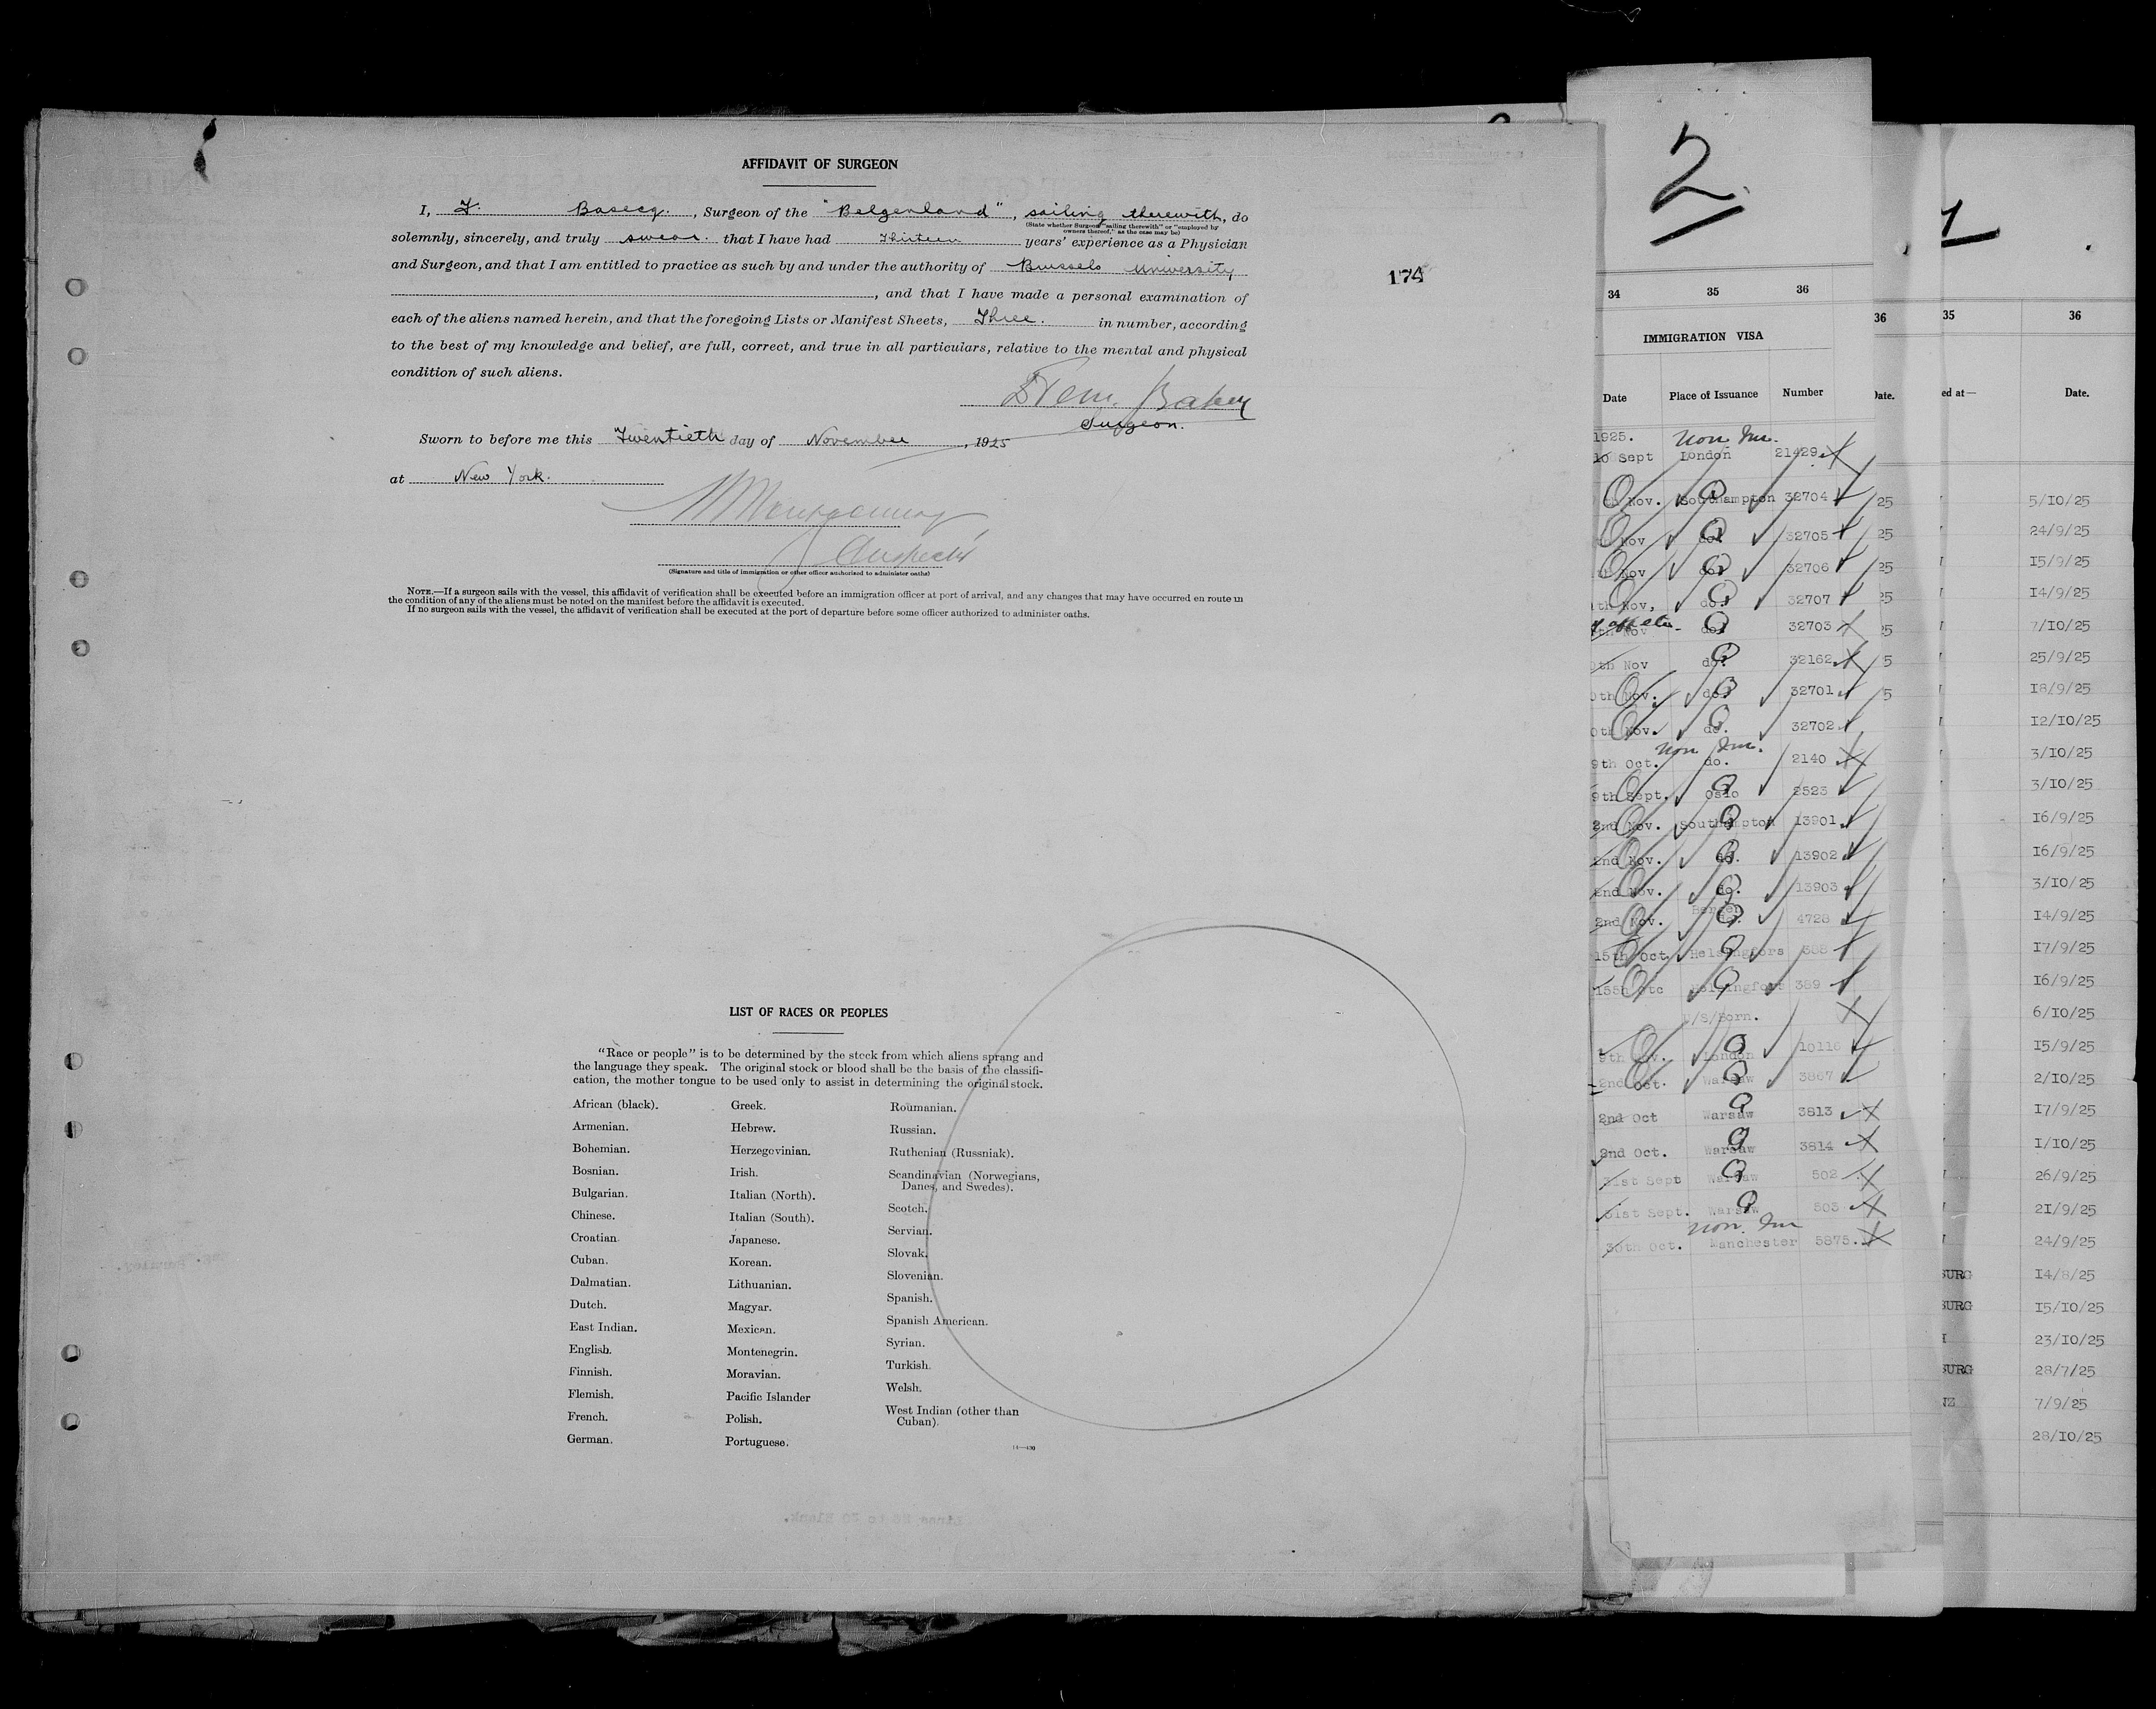 AFFIDAVIT OF SURGEON
I, F. Basecq., Surgeon of the "Belgenland", sailing therewith, do
(State whether Surgeon "sailing therewith" or "employed by
owners thereof," as the case may be)
solemnly, sincerely, and truly swear. that I have had Thirteen years' experience as a Physician
and Surgeon, and that I am entitled to practice as such by and under the authority of Brussels University
, and that I have made a personal examination of
each of the aliens named herein, and that the foregoing Lists or Manifest Sheets, Three. in number, according
to the best of my knowledge and belief, are full, correct, and true in all particulars, relative to the mental and physical
condition of such aliens.
Surgeon.
Sworn to before me this Twentieth day of November, 1925
at New York.
(Signature and title of immigration or other officer authorized to administer oaths)
NOTE.—If a surgeon sails with the vessel, this affidavit of verification shall be executed before an immigration officer at port of arrival, and any changes that may have occurred en route in
the condition of any of the aliens must be noted on the manifest before the affidavit is executed.
If no surgeon sails with the vessel, the affidavit of verification shall be executed at the port of departure before some officer authorized to administer oaths.
174
LIST OF RACES OR PEOPLES
"Race or people" is to be determined by the stock from which aliens sprang and
the language they speak. The original stock or blood shall be the basis of the classifi-
cation, the mother tongue to be used only to assist in determining the original stock.
African (black).
Armenian.
Bohemian.
Bosnian.
Bulgarian.
Chinese.
Croatian.
Cuban.
Dalmatian.
Dutch.
East Indian.
English.
Finnish.
Flemish.
French.
German.
Greek.
Hebrew.
Herzegovinian.
Irish.
Italian (North).
Italian (South).
Japanese.
Korean.
Lithuanian.
Magyar.
Mexican.
Montenegrin.
Moravian.
Pacific Islander
Polish.
Portuguese.
Roumanian.
Russian.
Ruthenian (Russniak).
Scandinavian (Norwegians,
Danes, and Swedes).
Scotch.
Servian.
Slovak.
Slovenian.
Spanish.
Spanish American.
Syrian.
Turkish.
Welsh.
West Indian (other than
Cuban).
2
34 35 36
IMMIGRATION VISA
Date Place of Issuance Number
1925. Non Im.
10 Sept London 21429
th Nov. Southampton 32704
Nov do. 32705
th Nov do. 32706
th Nov. do. 32707
th Nov do. 32703
th Nov do. 32162
0th Nov. do. 32701
0th Nov. do. 32702
Non Im.
9th Oct. do. 2140
9th Sept. Oslo 2523
2nd Nov. Southampton 13901
2nd Nov. do. 13902
2nd Nov. do. 13903
Bergen
2nd Nov. do. 4728
15th Oct. Helsingfors 388
15th Helsingfors 389
U/S/Born.
9th Nov. London 10116
2nd Oct. Warsaw 3867
2nd Oct Warsaw 3813
2nd Oct. Warsaw 3814
31st Sept Warsaw 502
31st Sept. Warsaw 503
Non Im
30th Oct. Manchester 5875.
36
Date.
25
25
25
25
5
5
5
1
35 36
ed at— Date.
5/10/25
24/9/25
15/9/25
14/9/25
7/10/25
25/9/25
18/9/25
12/10/25
3/10/25
3/10/25
16/9/25
16/9/25
3/10/25
14/9/25
17/9/25
16/9/25
6/10/25
15/9/25
2/10/25
17/9/25
1/10/25
26/9/25
21/9/25
24/9/25
BURG 14/8/25
BURG 15/10/25
23/10/25
BURG 28/7/25
NZ 7/9/25
28/10/25